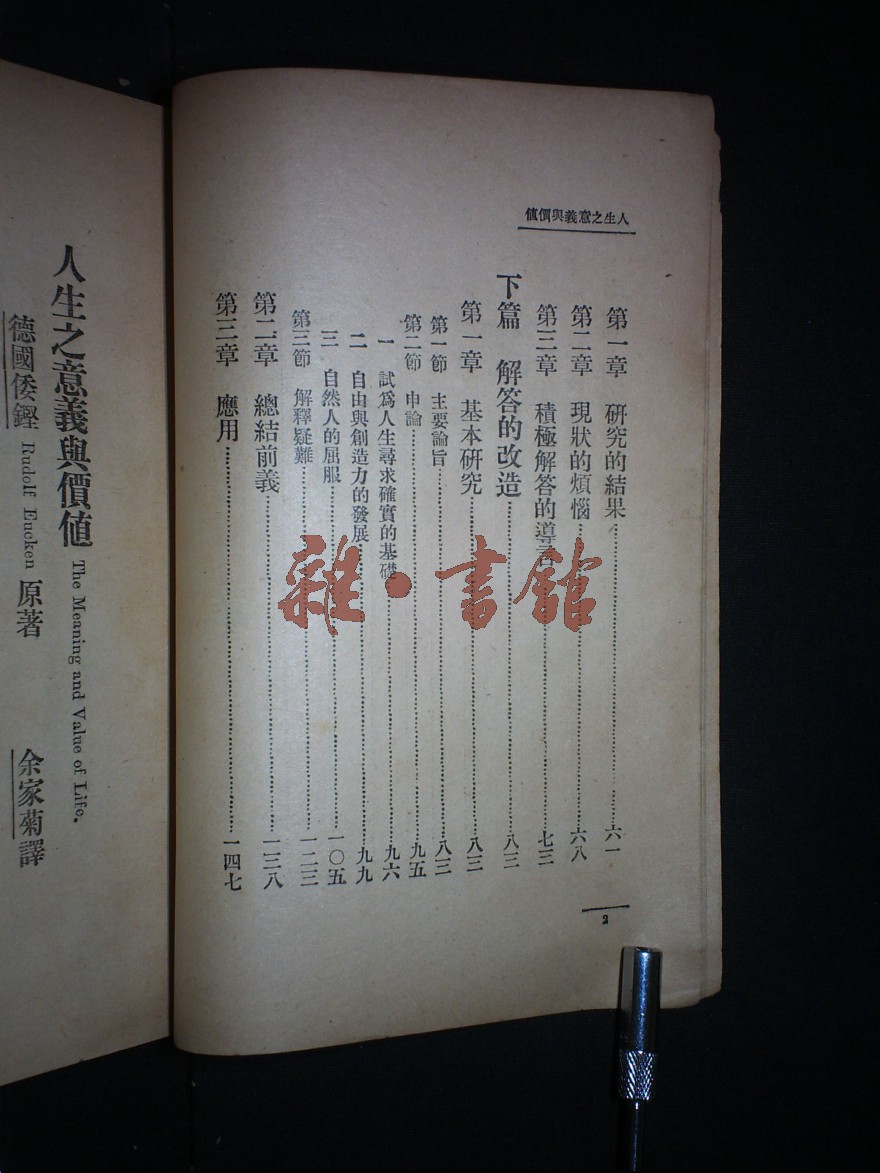 人生之意義與價值
第一章 研究的結果……六一
第二章 現狀的煩惱……六八
第三章 積極解答的導言……七三
下篇 解答的改造……八三
第一章 基本研究……八三
第一節 主要論旨……八三
第二節 申論……九五
一 試爲人生尋求確實的基礎……九六
二 自由與創造力的發展……九九
三 自然人的屈服……一〇五
第三節 解釋疑難……一二三
第二章 總結前義……一三八
第三章 應用……一四七
2
雜·書館
人生之意義與價値 The Meaning and Value of Life.
德國倭鏗 Rudolf Eucken 原著
余家菊譯